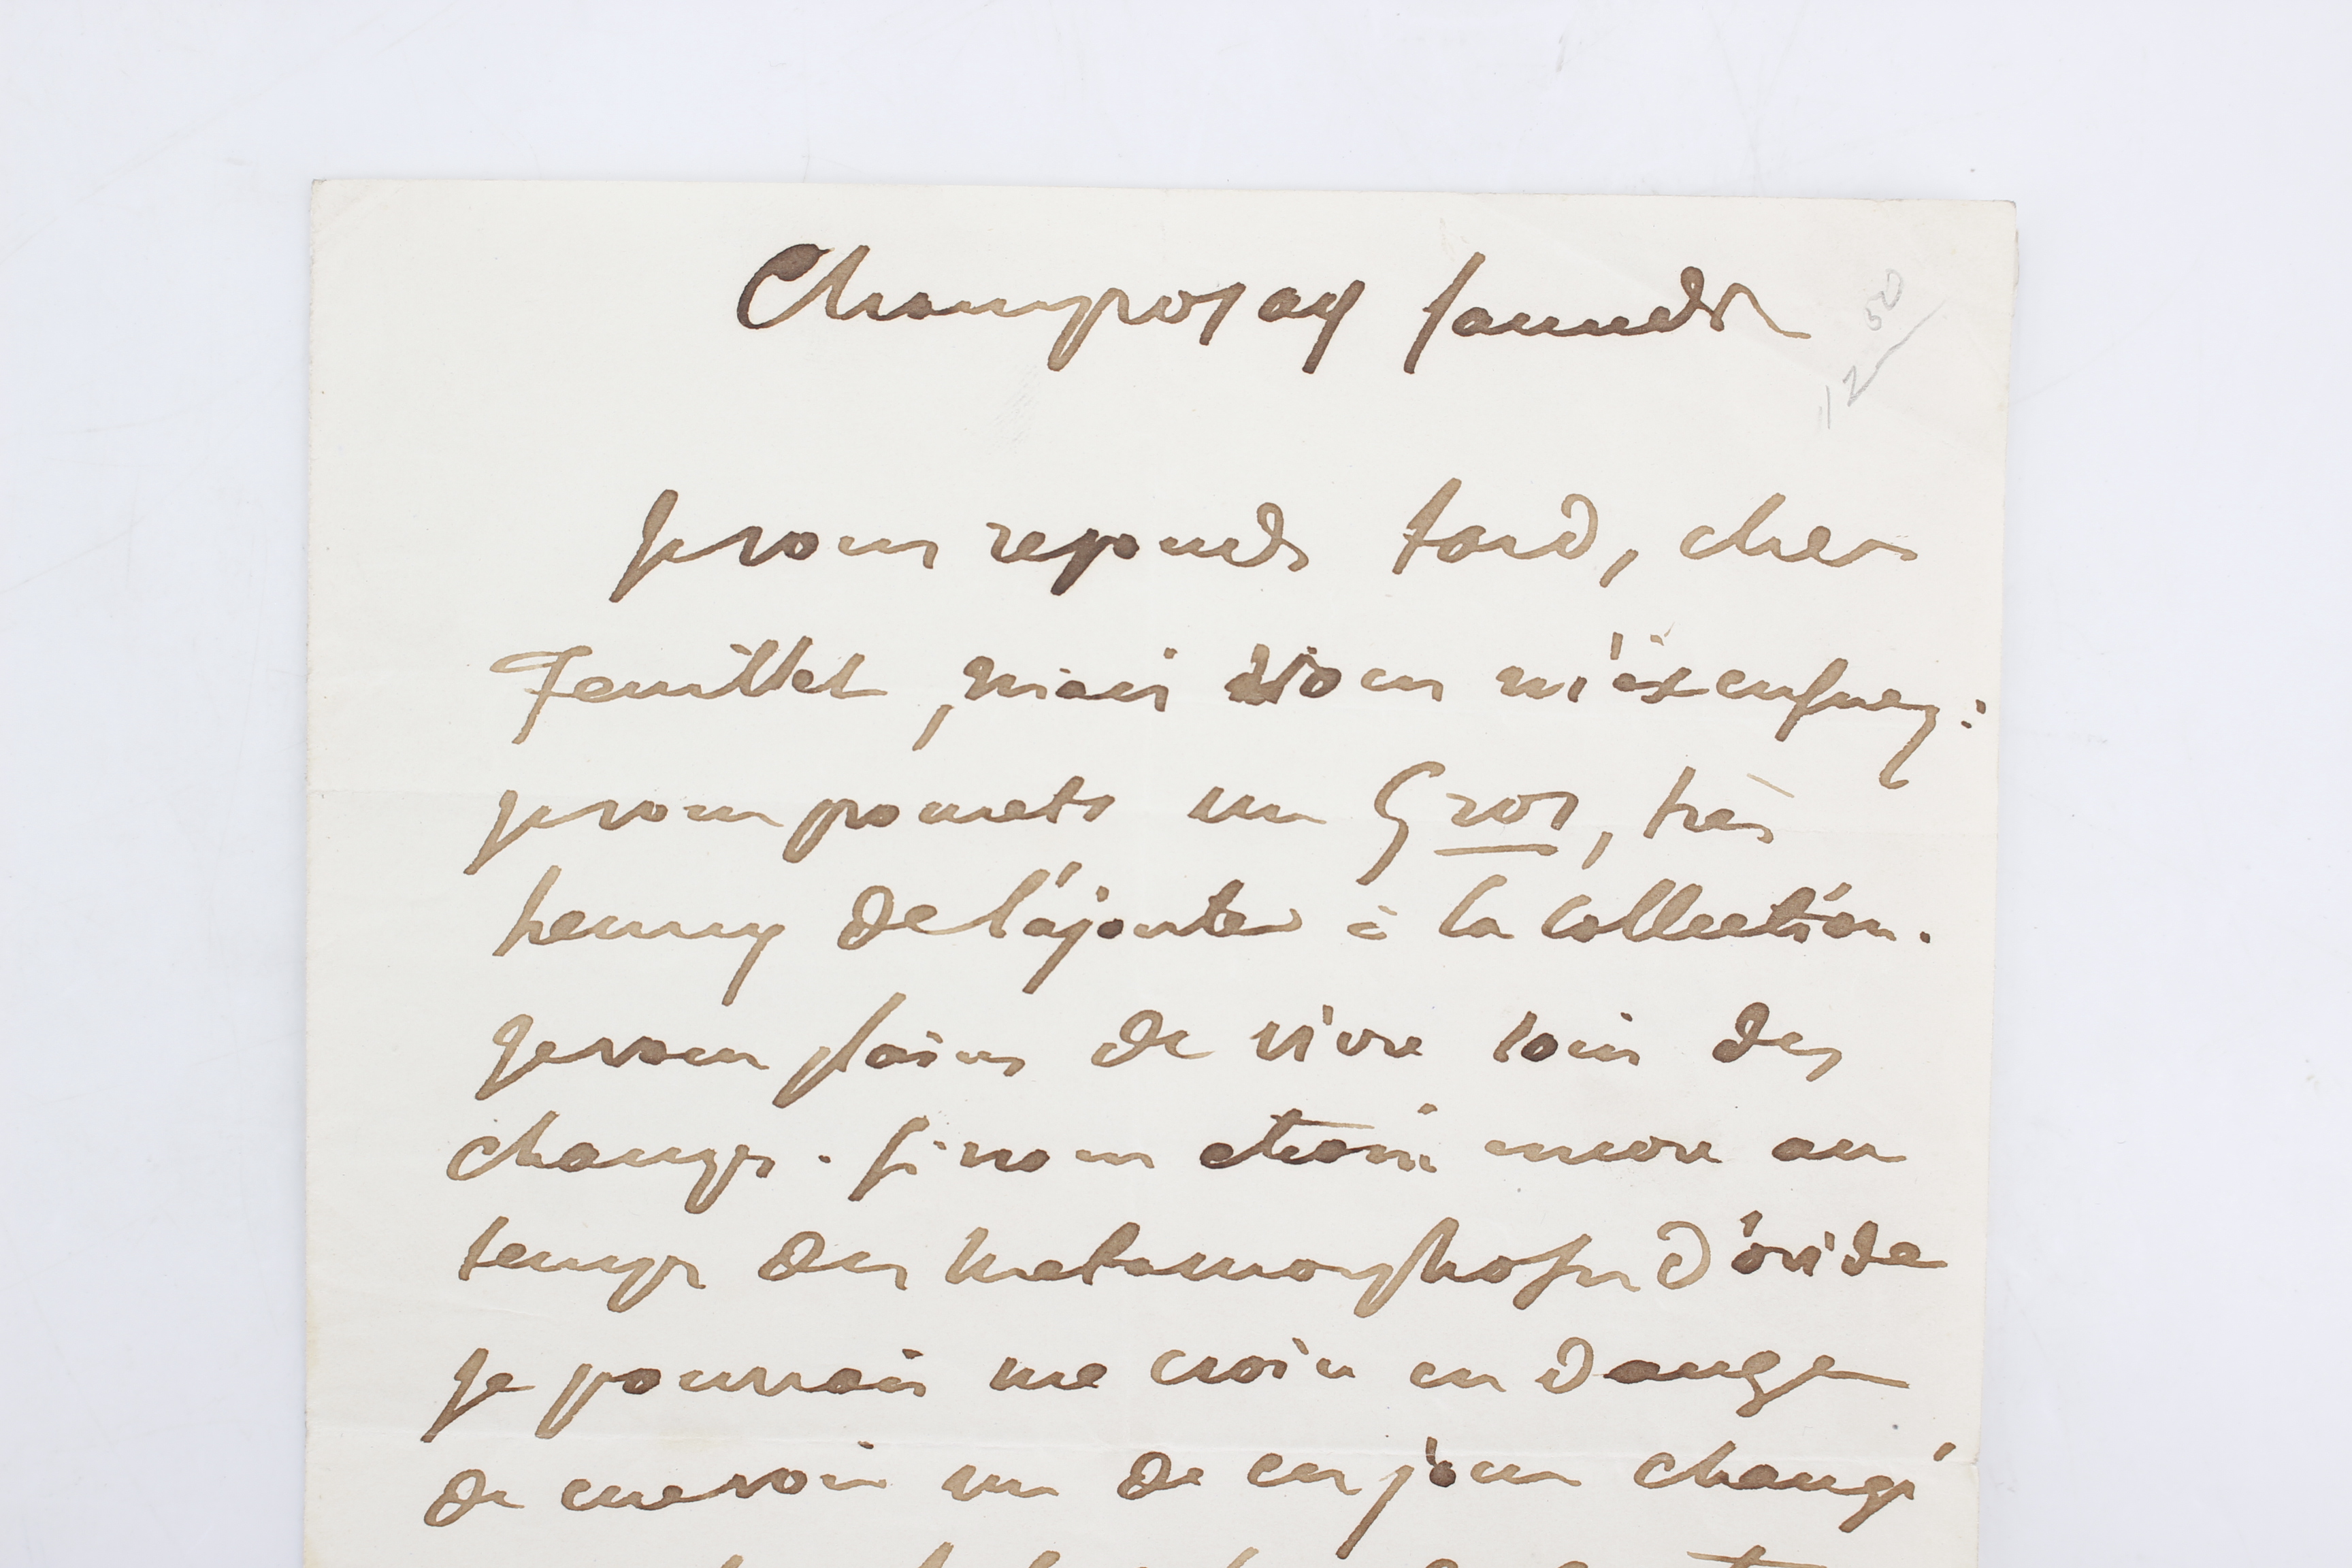 Champrosay samedi
12 50
je vous reponds tard, cher
Feuillet, mais vous m'éxcuserez :
je vous promets un Gros, très
heureux de l'ajouter à la collection.
Je vous plains de vivre loin des
champs. Si nous etions encore au
temps des metamorphoses d'ovide
je pourrais me croire en danger
de me voir un de ces jours changé